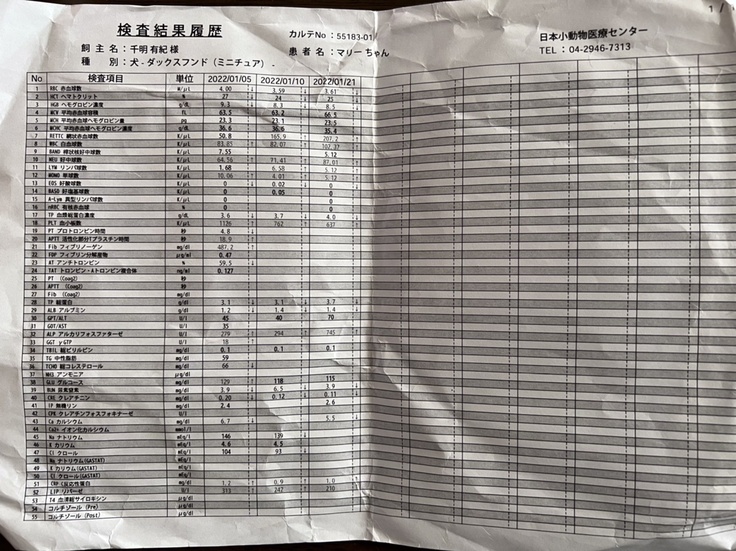 1 /
検査結果履歴
カルテNo : 55183-01
日本小動物医療センター
飼 主 名 : 千明 有紀 様
患 者 名 : マリー ちゃん
TEL : 04-2946-7313
種 別 : 犬 - ダックスフンド (ミニチュア) -
No 検査項目 単位 2022/01/05 2022/01/10 2022/01/21
1 RBC 赤血球数 M/μL 4.00 ↓ 3.59 ↓ 3.61 ↓
2 HCT ヘマトクリット % 27 ↓ 24 ↓ 25 ↓
3 HGB ヘモグロビン濃度 g/dL 9.3 ↓ 8.3 ↓ 8.5 ↓
4 MCV 平均赤血球容積 fL 63.5 63.2 66.5
5 MCH 平均赤血球ヘモグロビン量 pg 23.3 23.1 23.5
6 MCHC 平均赤血球ヘモグロビン濃度 g/dL 36.6 36.6 35.4
7 RETIC 網状赤血球数 K/μL 50.8 165.9 ↑ 207.2 ↑
8 WBC 白血球数 K/μL 83.85 ↑ 82.07 ↑ 102.37 ↑
9 BAND 桿状核好中球数 K/μL 7.55 5.12
10 NEU 好中球数 K/μL 64.56 ↑ 71.41 ↑ 87.01 ↑
11 LYM リンパ球数 K/μL 1.68 6.58 ↑ 5.12 ↑
12 MONO 単球数 K/μL 10.06 ↑ 4.01 ↑ 5.12 ↑
13 EOS 好酸球数 K/μL 0 ↓ 0.02 ↓ 0 ↓
14 BASO 好塩基球数 K/μL 0 0.05 0
15 A-Lym 異型リンパ球数 K/μL 0 0
16 nRBC 有核赤血球 % 0 0
17 TP 血漿総蛋白濃度 g/dL 3.6 ↓ 3.7 ↓ 4.0 ↓
18 PLT 血小板数 K/μL 1126 ↑ 762 ↑ 637 ↑
19 PT プロトロンビン時間 秒 4.8 ↓
20 APTT 活性化部分トプラスチン時間 秒 18.9 ↑
21 Fib フィブリノーゲン mg/dl 487.2 ↑
22 FDP フィブリン分解産物 μg/ml 0.47
23 AT アンチトロンビン % 59.5 ↓
24 TAT トロンビン・Aトロンビン複合体 ng/ml 0.127
25 PT (Coag2) 秒
26 APTT (Coag2) 秒
27 Fib (Coag2) mg/dl
28 TP 総蛋白 g/dl 3.1 ↓ 3.1 ↓ 3.7 ↓
29 ALB アルブミン g/dl 1.2 ↓ 1.4 ↓ 1.4 ↓
30 GPT/ALT U/l 45 40 70
31 GOT/AST U/l 35
32 ALP アルカリフォスファターゼ U/l 279 ↑ 294 ↑ 745 ↑
33 GGT γGTP U/l 18 ↑
34 TBIL 総ビリルビン mg/dl 0.1 0.1 0.1
35 TG 中性脂肪 mg/dl 59
36 TCHO 総コレステロール mg/dl 66 ↓
37 NH3 アンモニア μg/dl
38 GLU グルコース mg/dl 129 ↑ 118 115
39 BUN 尿素窒素 mg/dl 3.9 ↓ 6.5 ↓ 3.9 ↓
40 CRE クレアチニン mg/dl 0.20 ↓ 0.12 ↓ 0.11 ↓
41 IP 無機リン mg/dl 2.4 2.6
42 CPK クレアチンフォスフォキナーゼ U/l
43 Ca カルシウム mg/dl 6.7 ↓ 5.5 ↓
44 Ca2+ イオン化カルシウム mmol/l
45 Na ナトリウム mEq/l 146 139 ↓
46 K カリウム mEq/l 4.6 4.5
47 Cl クロール mEq/l 104 93 ↓
48 Na ナトリウム(GASTAT) mEq/l
49 K カリウム(GASTAT) mEq/l
50 Cl クロール(GASTAT) mEq/l
51 CRP C反応性蛋白 mg/dl 1.2 ↑ 0.9 ↑ 1.0 ↑
52 LIP リパーゼ U/l 313 ↑ 247 ↑ 210 ↑
53 T4 血清総サイロキシン μg/dl
54 コルチゾール (Pre) μg/dl
55 コルチゾール (Post) μg/dl